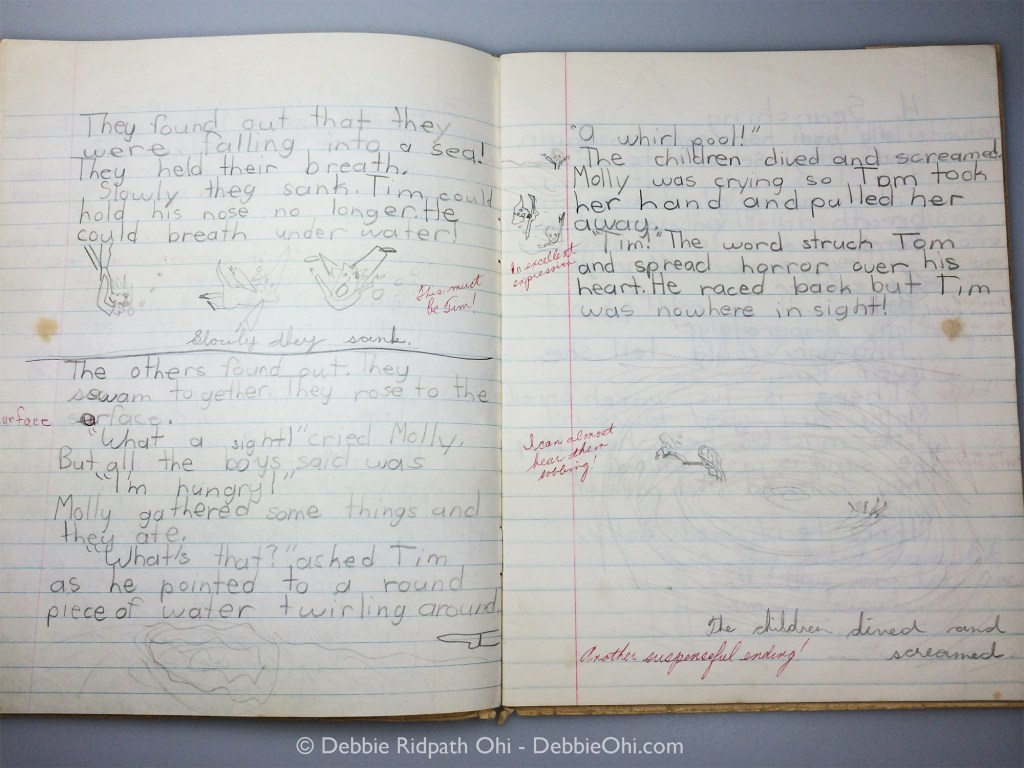 They found out that they
were falling into a sea!
They held their breath.
Slowly they sank. Tim could
hold his nose no longer. He
could breath under water!
This must
be Tim!
Slowly they sank.
The others found out. They
swam together. They rose to the
urface
surface.
"What a sight!" cried Molly.
But all the boys said was
"I'm hungry!"
Molly gathered some things and
they ate.
"What's that?" asked Tim
as he pointed to a round
piece of water twirling around.
"A whirl pool!"
The children dived and screamed.
Molly was crying so Tom took
her hand and pulled her
away.
"Tim!" The word struck Tom
An excellent
expression
and spread horror over his
heart. He raced back but Tim
was nowhere in sight!
I can almost
hear them
sobbing!
The children dived and
screamed.
Another suspenseful ending!
© Debbie Ridpath Ohi - DebbieOhi.com